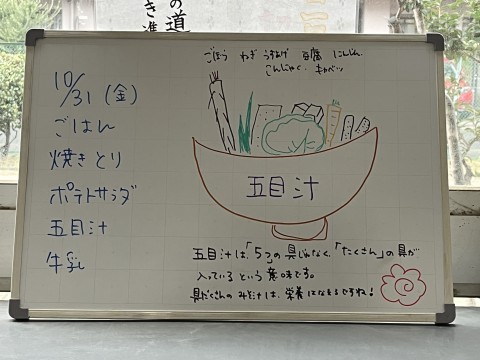 の道
き進
10/31 (金)
ごはん
焼きとり
ポテトサラダ
五目汁
牛乳
ごぼう ねぎ うすあげ 豆腐 にんじん
こんにゃく キャベツ
五目汁
五目汁は「5つ」の具じゃなく、「たくさん」の具が
入っているという意味です。
具だくさんのみそ汁は、栄養になるですね!